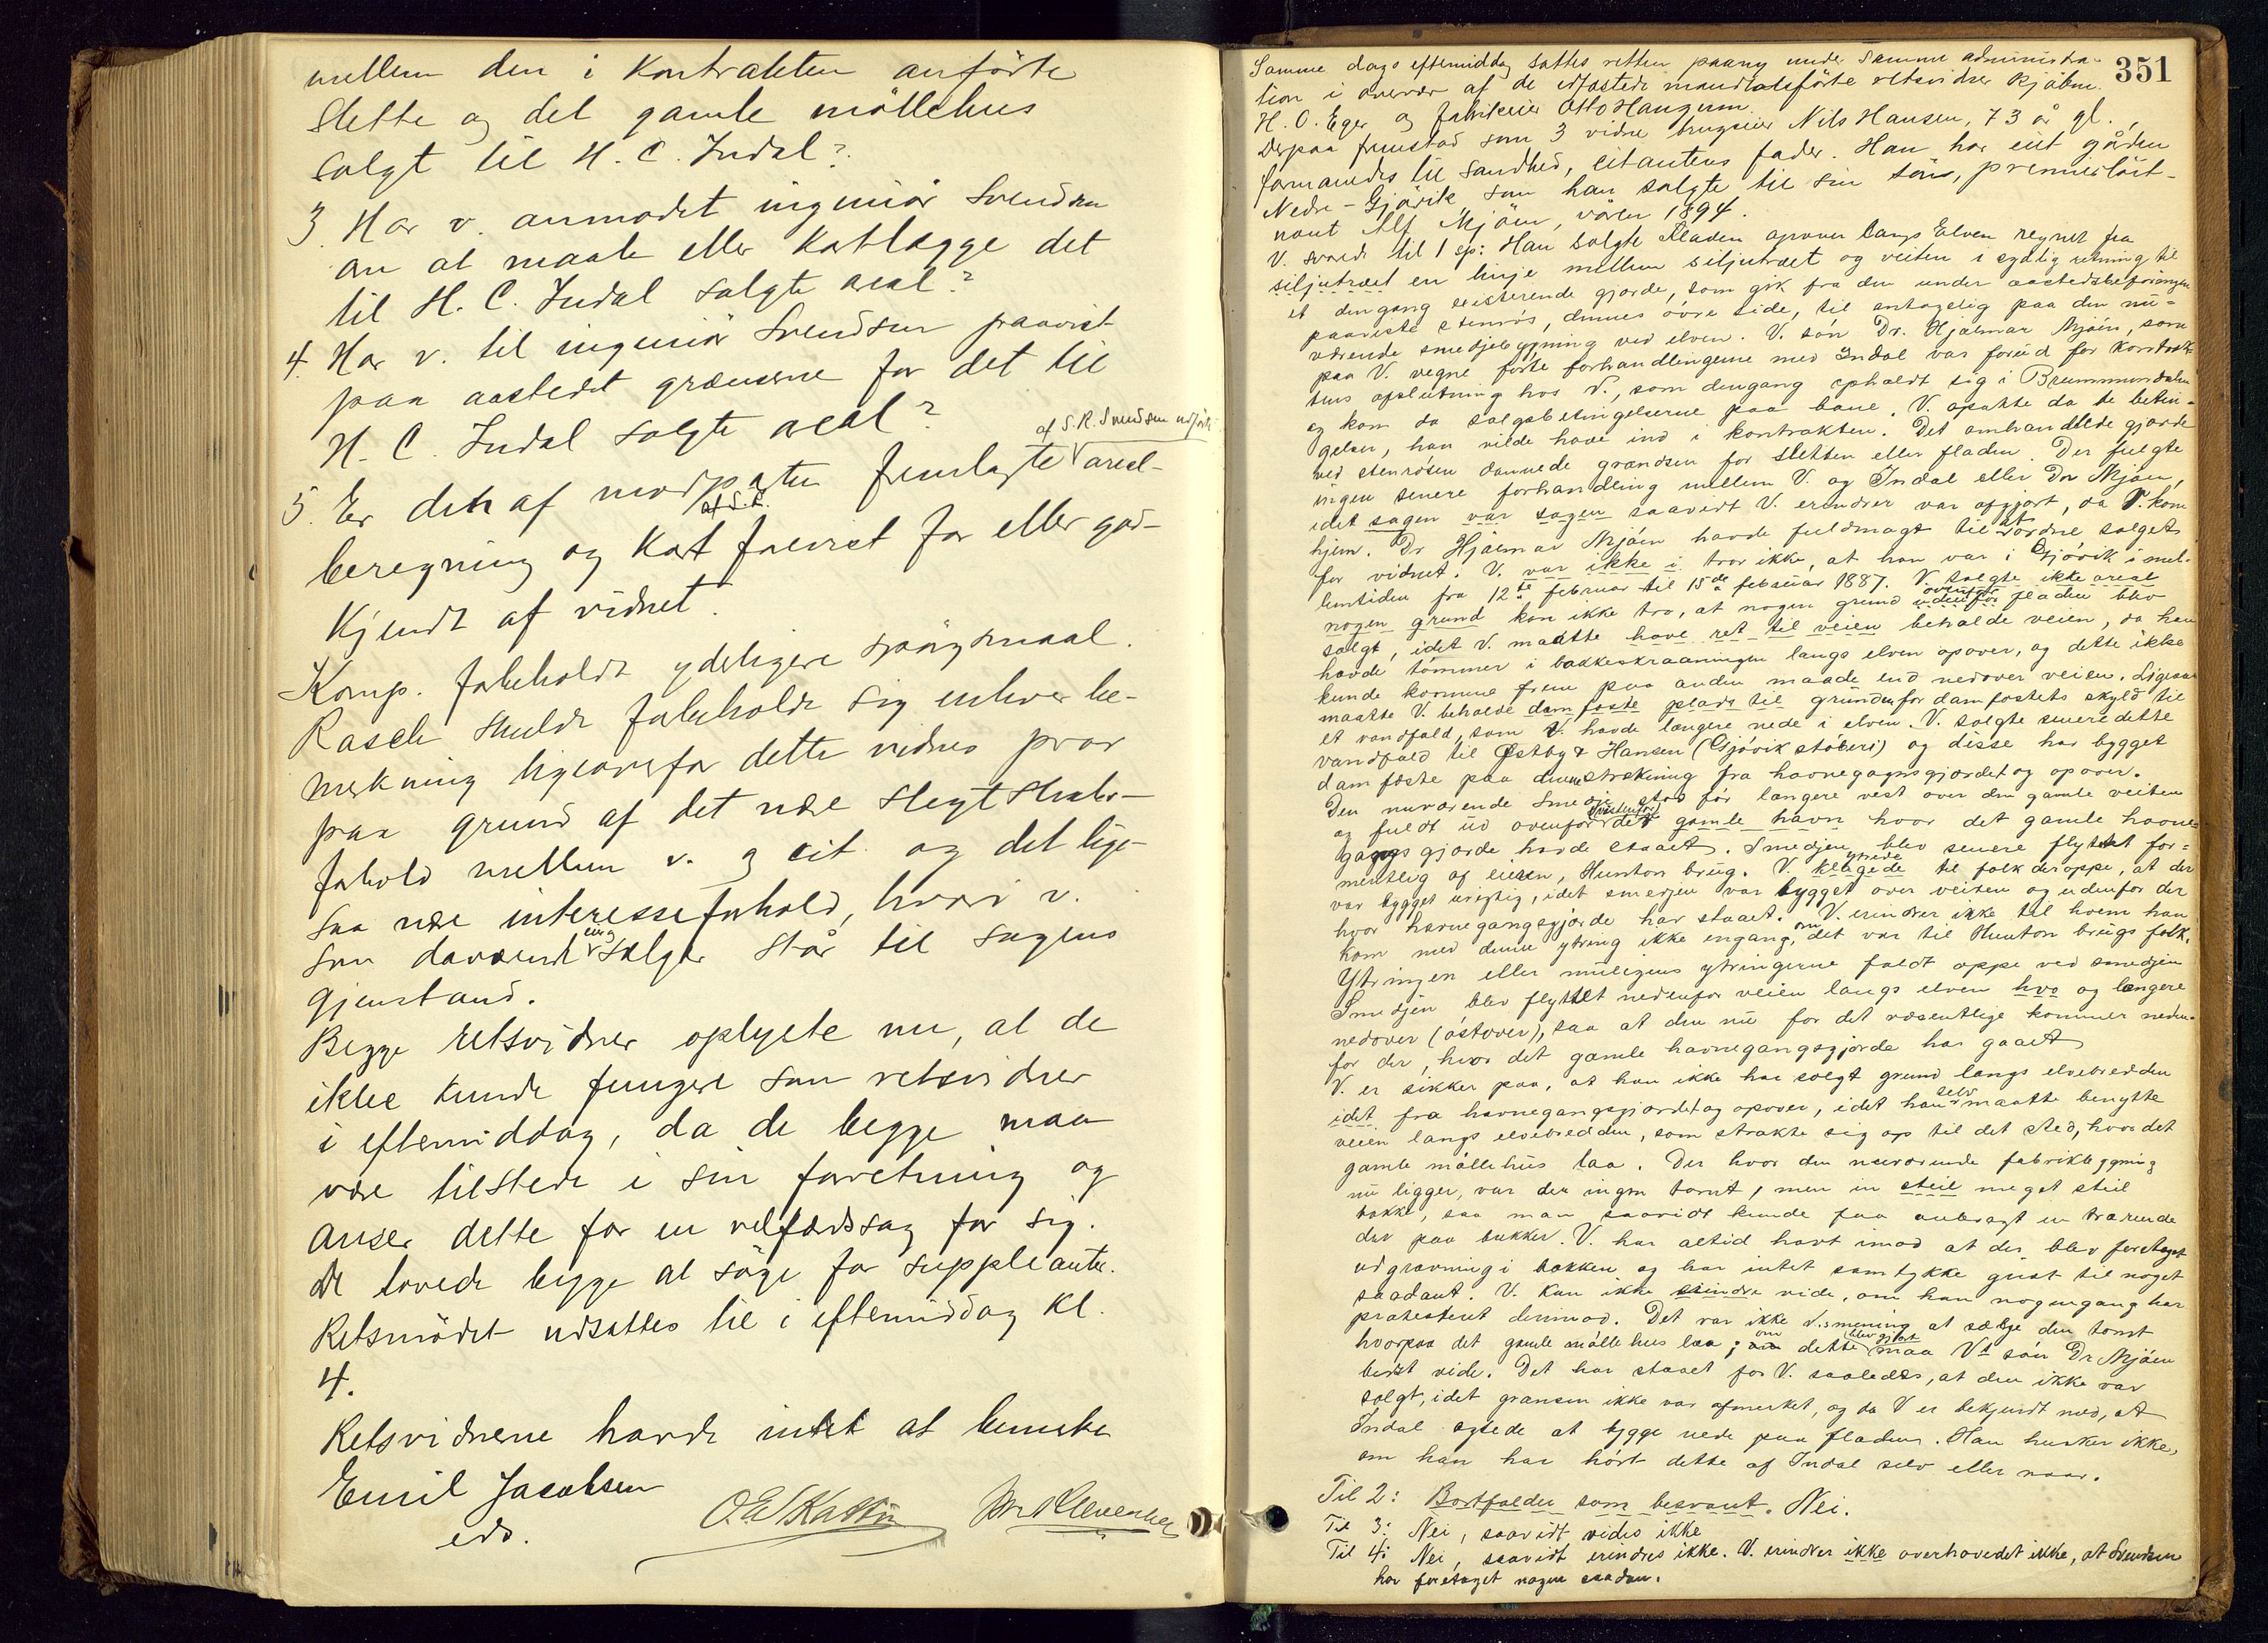 mellem den i Kontrakten anförte
Slette og det gamle möllehus
solgt til H. C. Indal?
3. Har v. anmodet ingeniör Svendsen
om at maale eller Kartlægge det
til H. C. Indal solgte areal?
4. Har v. til ingeniör Svendsen paavist
paa aastedet grænserne for det til
H. C. Indal solgte areal?
af S. R. Svendsen udförte
5. Er den af modparten fremlagte areal-
beregning og Kart forevist for eller god-
Kjendt af vidnet.
Komp. forbeholdt yderligere spörgsmaal.
Rasch skulde forbeholde sig enhver be-
merkning ligeoverfor dette vidnes prov
paa grund af det nære slegtskabs-
forhold mellem v. og cit. og det lige-
saa nære interesseforhold, hvori v.
som daværende sælger står til sagens
gjenstand.
Begge retsvidner oplyste nu, at de
ikke kunde fungere som retsvidner
i eftermiddag, da de begge maa
være tilstede i sin forretning og
anser dette for en velfærdssag for sig.
De lovede begge at sörge for suppleanter.
Retsmödet udsattes til i eftermiddag Kl.
4.
Retsvidnerne havde intet at bemerke
Emil Jacobsen
eds.
351
Samme dags eftermiddag sattes retten paany under samme administra-
tion i overvær af de edfæstede mandtalsförte retsvidner Kjöbm.
H. O. Eger og fabrikeier Otto Haugerun.
Derpaa fremstod som 3 vidne brugseier Nils Hansen, 73 år gl.,
formanedes til sandhed, citantens fader. Han har eiet gården
Nedre-Gjövik, som han solgte til sin sön, premierlöit-
nant Alf Mjöen, våren 1894.
V. svarede til 1 sp: Han solgte Fladen opover langs Elven regnet fra
siljutræet en linje mellem siljutræet og veiten i sydlig retning til
et dengang existerende gjærde, som gik fra den under aastedsbefaringen
paaviste stenrös, dennes övre side, til antagelig paa den nu-
værende smedjebygning ved elven. V. sön Dr. Hjalmar Mjöen, som
paa V. vegne förte forhandlingerne med Indal var forud for kontrak-
tens afslutning hos V., som dengang opholdt sig i Brummunddalen
og kom da salgsbetingelserne paa bane. V. opsatte da de betin-
gelser, han vilde have ind i kontrakten. Det omhandlede gjærde
ved stenrösen dannede grændsen for sletten eller fladen. Der fulgte
ingen senere forhandling mellem V. og Indal eller Dr Mjöen,
idet sagen var sagen saavidt V. erindrer var afgjort, da V. kom
hjem. Dr Hjalmar Mjöen havde fuldmagt til at ordne salget
for vidnet. V. var ikke i tror ikke, at han var i Gjövik i mel-
lemtiden fra 12te februar til 15de februar 1887. V. solgte ikke areal
nogen grund kan ikke tro, at nogen grund udenfor ovenfor fladen blev
solgt, idet V. maatte have ret til veien beholde veien, da han
havde tömmer i bakkeskraaningen langs elven opover, og dette ikke
kunde komme frem paa anden maade end nedover veien. Ligesaa
maatte V. beholde dam foste plads til grunden for damfostets skyld til
et vandfald, som V. havde længere nede i elven. V. solgte senere dette
vandfald til Østby & Hansen (Gjövik stöberi) og disse har bygget
damfæste paa denne strækning fra havnegangsgjærdet og opover.
Den nuværende Smedje stod för længere vest over den gamle veiten
og fuldt ud ovenfor (vestenfor) det gamle havn hvor det gamle havne-
gangsgjærde havde staaet. Smedjen blev senere flyttet for-
mentlig af eieren, Hunton brug. V. klagede ytrede til folk deroppe, at den
var bygget urigtig, idet smedjen var bygget over veiten og udenfor der
hvor havnegangsgjærde har staaet. V. erindrer ikke til hvem han
kom med denne ytring ikke engang, om det var til Hunton brugs folk.
Ytringen eller muligens ytringerne faldt oppe ved smedjen
Smedjen blev flyttet nedenfor veien langs elven hvo og længere
nedover (östover), saa at den nu for det væsentlige kommer neden-
for der, hvor det gamle havnegangsgjærde har gaaet
V. er sikker paa, at han ikke har solgt grund langs elvebredden
idet fra havnegangsgjærdet og opover, idet han selv maatte benytte
veien langs elvebredden, som strakte sig op til det sted, hvor det
gamle möllehus laa. Der hvor den nuværende fabrikbygning
nu ligger, var der ingen tomt, men en steil meget steil
bakke, saa man saavidt kunde faa anbragt en trærende
der paa bukker. V. har altid havt imod at der blev foretaget
udgravning i bakken og har intet samtykke givet til noget
saadant. V. kan ikke erindre vide, om han nogengang har
protesteret derimod. Det var ikke V.s mening at sælge den tomt
hvorpaa det gamle möllehus laa; om dette blev gjort maa Vs sön Dr Mjöen
bedst vide. Det har staaet for V. saaledes, at den ikke var
solgt, idet grænsen ikke var afmerket, og da V er bekjendt med, at
Indal agtede at bygge nede paa fladen. Han husker ikke,
om han har hört dette af Indal selv eller naar.
Til 2: Bortfalder som besvaret. Nei.
Til 3: Nei, saavidt vides ikke
Til 4: Nei, saavidt erindres ikke. V. erindrer ikke overhovedet ikke, at Svendsen
har foretaget nogen saadan.